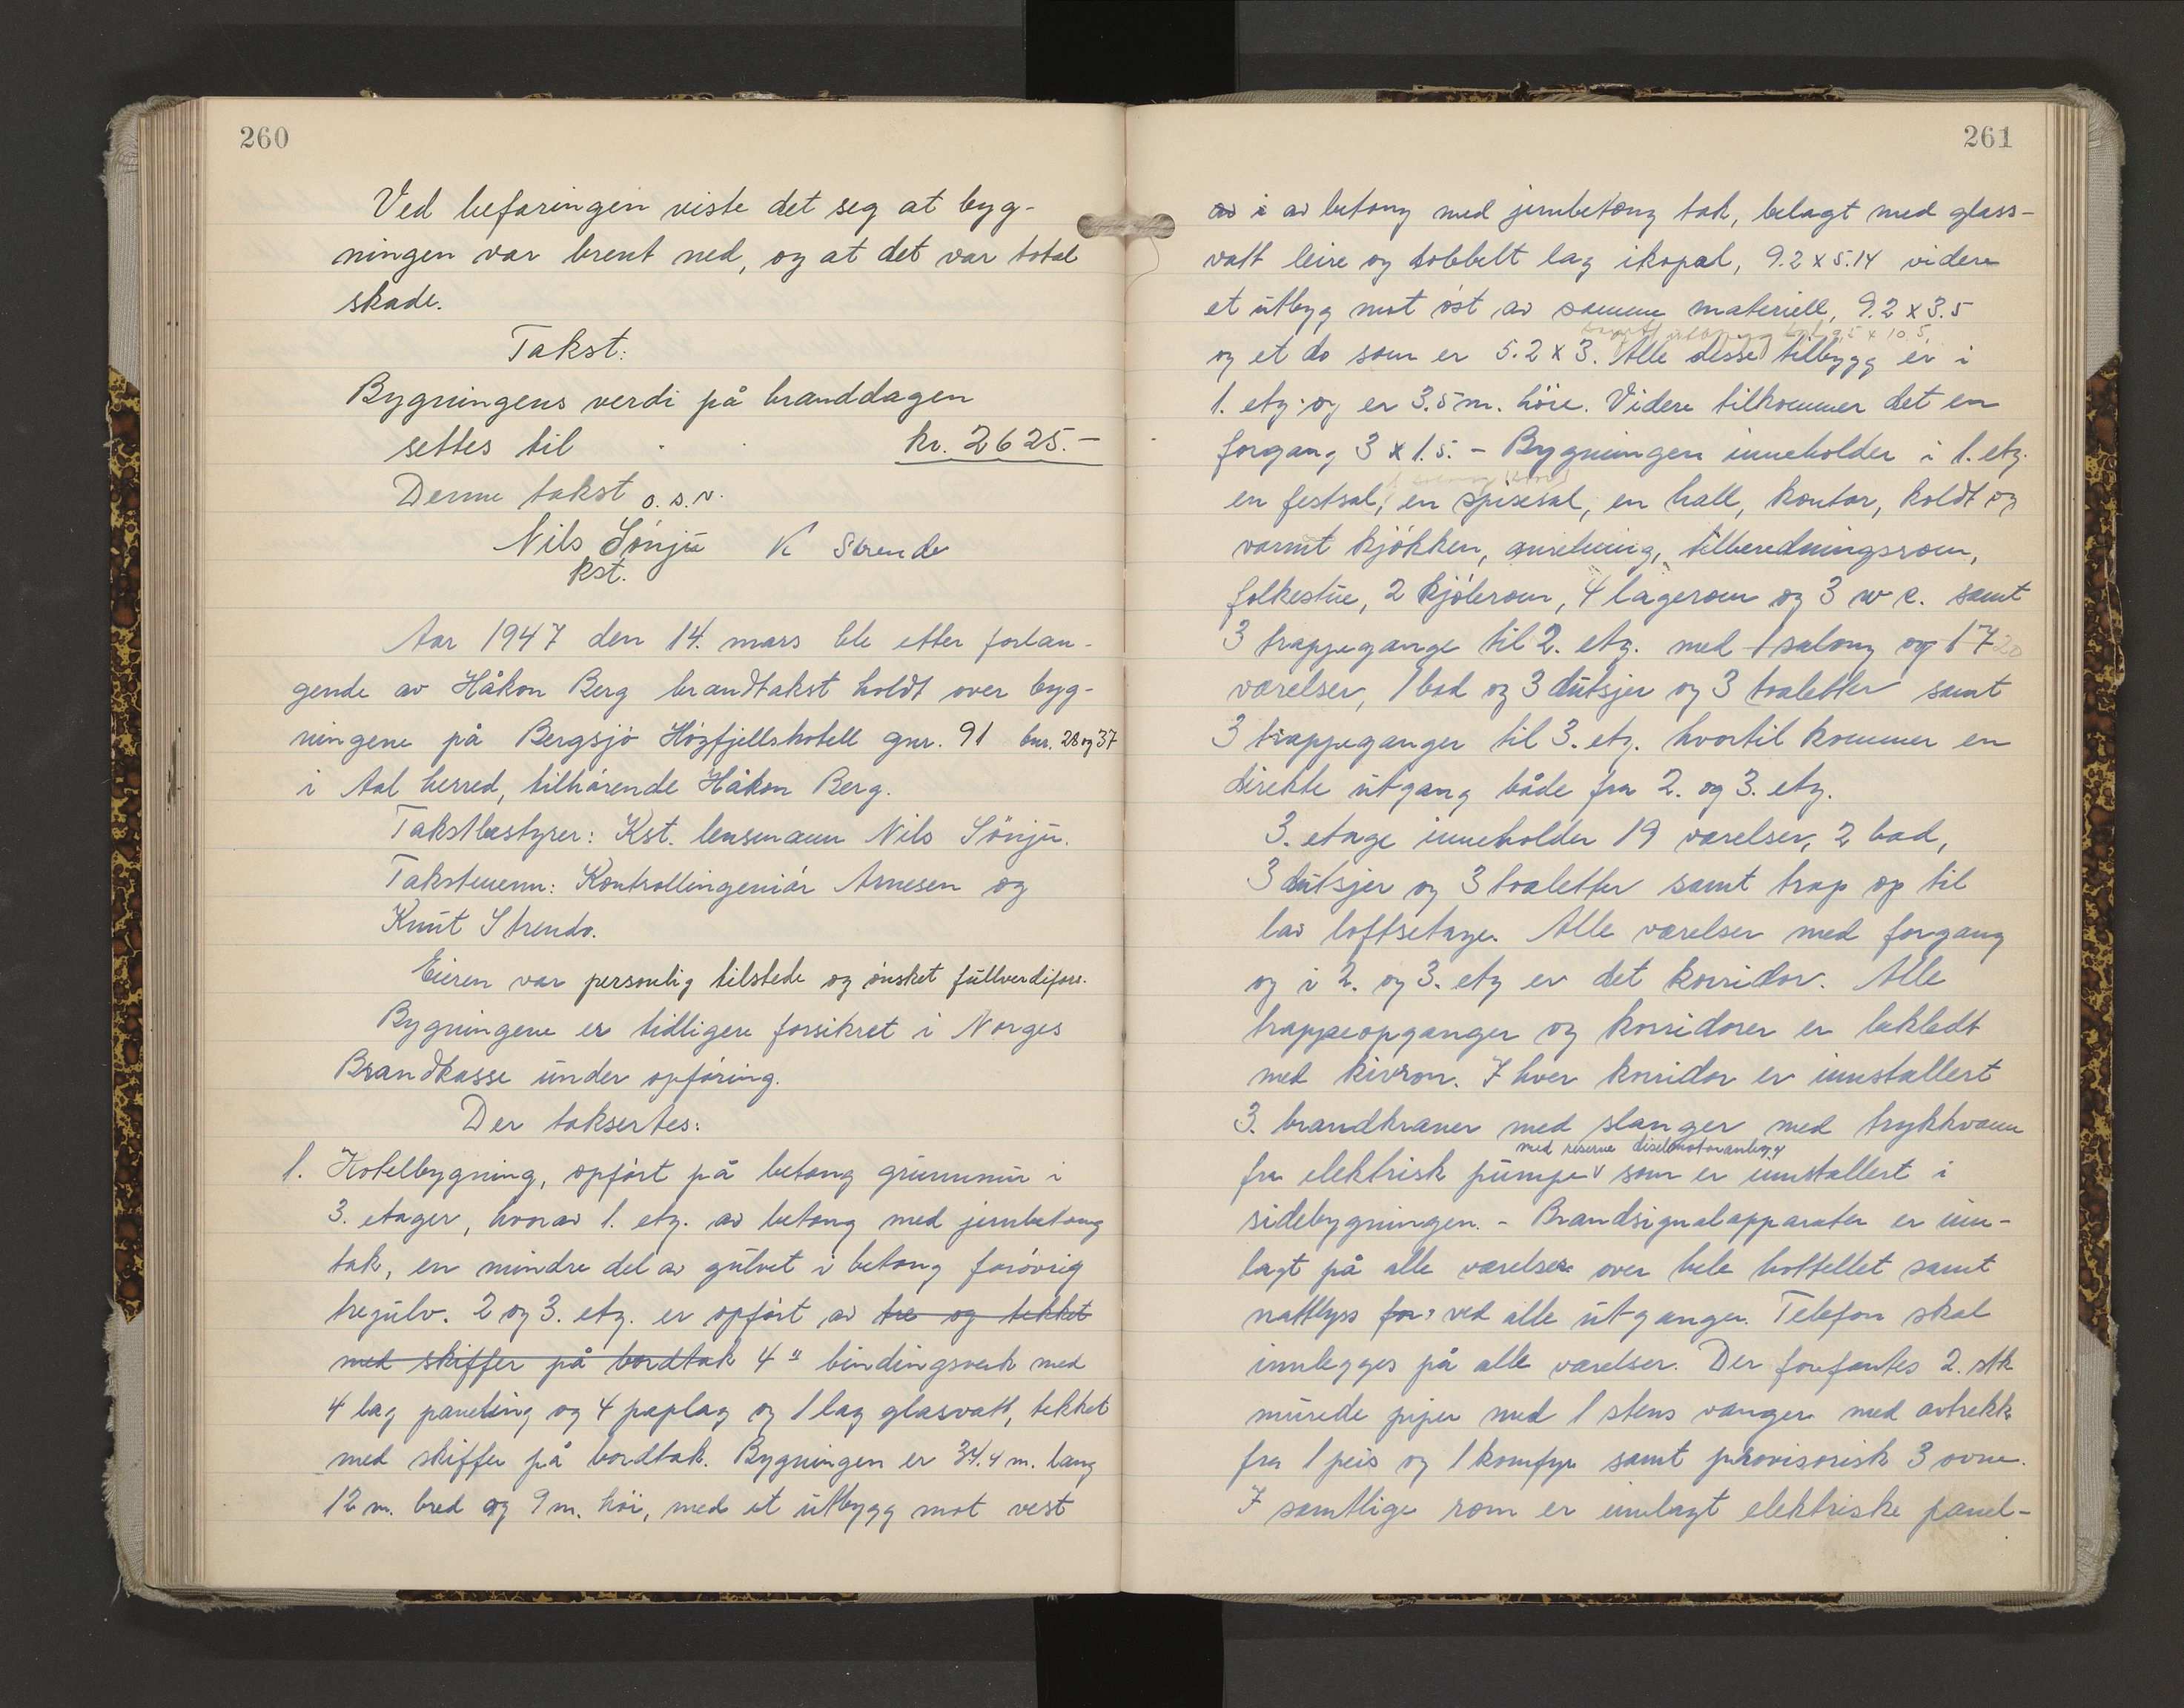 260
Ved befaringen viste det seg at byg-
ningen var brent ned, og at det var total
skade.
Takst:
Bygningens verdi på branddagen
settes til . . kr. 2625.-
Denne takst o.s.v.
Nils Sönju K Strende
kst.
Aar 1947 den 14. mars ble etter forlan-
gende av Håkon Berg brandtakst holdt over byg-
ningene på Bergsjø Høgfjellshotell gnr. 91 bnr. 28 og 37
i Aal herred, tilhörende Håkon Berg.
Takstbestyrer: Kst. lensmann Nils Sönju.
Takstmenn: Kontrollingeniör Arnesen og
Knut Strende.
Eieren var personlig tilstede og önsket fullverdifors.
Bygningene er tidligere forsikret i Norges
Brandkasse under opföring.
Der taksertes:
1. Hotelbygning, opfört på betong grunnmur i
3. etager, hvorav 1. etg. av betong med jernbetong
tak, en mindre del av gulvet i betong forövrig
tregulv. 2 og 3. etg. er opfört av tre og tekket
med skiffer på bordtak 4" bindingsverk med
4 lag paneling og 4 paplag og 1 lag glasvatt, tekket
med skiffer på bordtak. Bygningen er 34.4 m. lang
12 m. bred og 9 m. höi, med et utbygg mot vest
261
av i av betong med jernbetong tak, belagt med glass-
vatt leire og dobbelt lag ikopal, 9.2 x 5.14 videre
et utbyg mot öst av samme materiell, 9.2 x 3.5
og et do som er 5.2 x 3. Alle disse tilbygg er i
1. etg. og er 3.5 m. höie. Videre tilkommer det en
forgang 3 x 1.5. - Bygningen inneholder i 1. etg.
en festsal, en spisesal, en hall, kontor, koldt og
varmt kjökken, anretning, tilberedningsrom,
folkestue, 2 kjölerom, 4 lagerom og 3 w c. samt
3 trappegange til 2. etg. med 1 salong og 17 20
værelser, 1 bad og 3 dutsjer og 3 toaletter samt
3 trappeganger til 3. etg. hvortil kommer en
direkte utgang både fra 2. og 3. etg.
3. etage inneholder 19 værelser, 2 bad,
3 dutsjer og 3 toaletter samt trap op til
lav loftsetage. Alle værelser med forgang
og i 2. og 3. etg er det korridor. Alle
trappeopganger og korridorer er bekledt
med kivron. I hver korridor er innstallert
3. brandkraner med slanger med trykkvann
med reserve diselmotoranlegg
fra elektrisk pumpe v som er innstallert i
sidebygningen. - Brandsignalapparater er inn-
lagt på alle værelser over hele hottellet samt
nattlyss for ved alle utganger. Telefon skal
innlegges på alle værelser. Der forefantes 2. stk
murede piper med 1 stens vanger med avtrekk
fra 1 peis og 1 komfyr samt provisorisk 3 ovne.
I samtlige rom er innlagt elektriske panel-